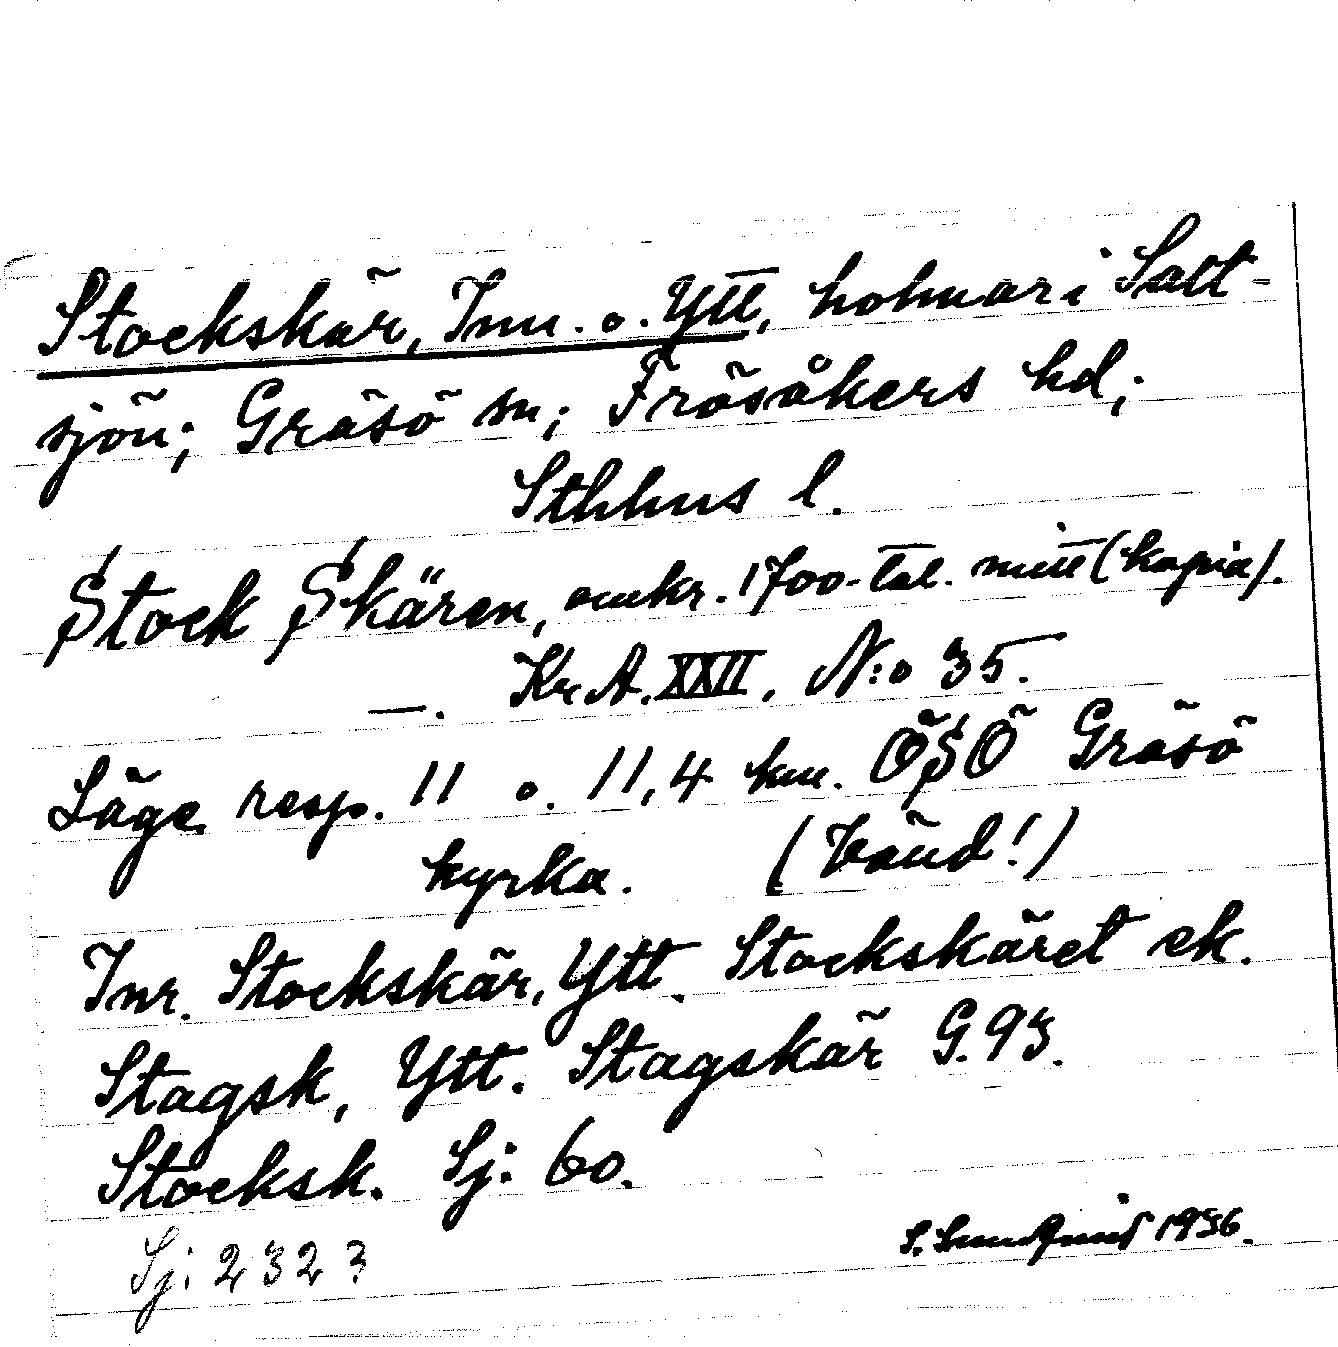 Stockskär, Inn. o. Ytt, holmar i Salt-
sjön; Gräsö sn; Frösåkers hd;
Sthhus l.
Stock Skären, omkr. 1700-tal. mitt (kopia).
—. KrA. XXII, N:o 35.
Läge resp. 11 o. 11,4 km. ÖSÖ Gräsö
kyrka. (Vänd!)
Inr. Stockskär, Ytt. Stockskäret ek.
Stagsk, Ytt. Stagskär G. 93.
Stocksk. Sj: 60.
Sj: 2323
S. Sundqvist 1936.